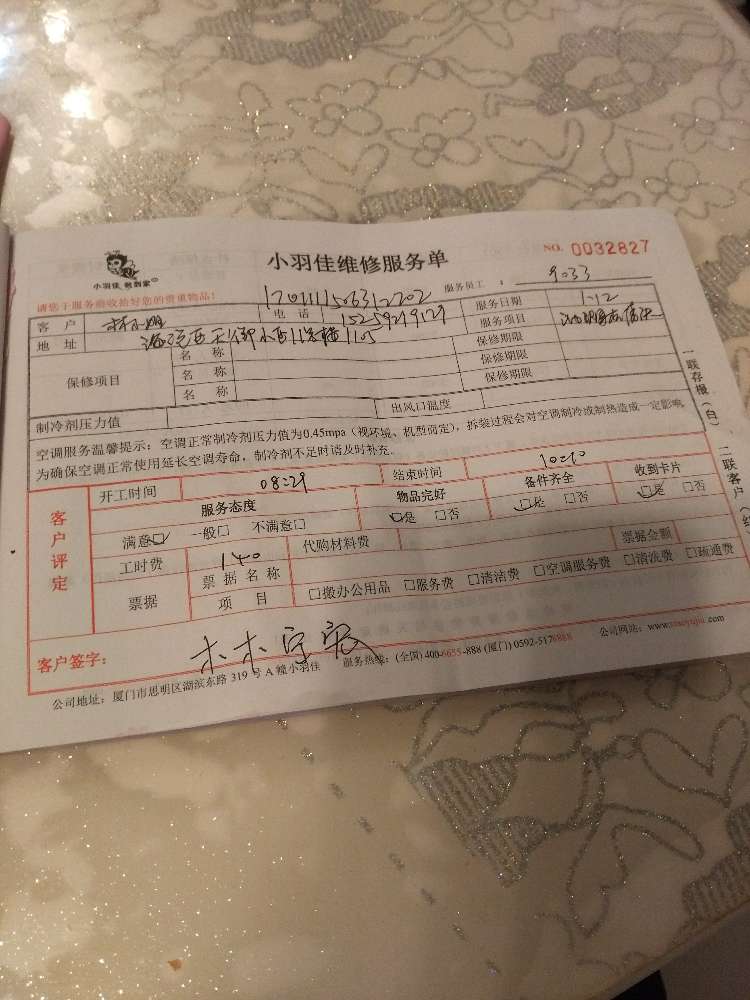 小羽佳维修服务单
NO. 0032827
小羽佳 敏到家
请您于服务前收拾好您的贵重物品!
服务员工 : 9033
客户 林小姐 电话 15259219129 服务日期 1.12
地址 服务项目
保修项目 名称 保修期限
名称 保修期限
名称 保修期限
制冷剂压力值 出风口温度
空调服务温馨提示:空调正常制冷剂压力值为0.45mpa(视环境、机型而定),拆装过程会对空调制冷或制热造成一定影响,
为确保空调正常使用延长空调寿命,制冷剂不足时请及时补充。
客户评定
开工时间 08:29 结束时间 10:10
服务态度 物品完好 备件齐全 收到卡片
满意□ 一般□ 不满意□ □是 □否 □是 □否 □是 □否
工时费 140 代购材料费
票据 票据名称 票据金额
项目 □搬办公用品 □服务费 □清洁费 □空调服务费 □清洗费 □疏通费
客户签字:
公司地址:厦门市思明区湖滨东路 319 号 A 幢小羽佳 服务热线:(全国) 400-6655-888 (厦门) 0592-5176888 公司网站:www.xiaoyujia.com
一联存根(白)
二联客户(红